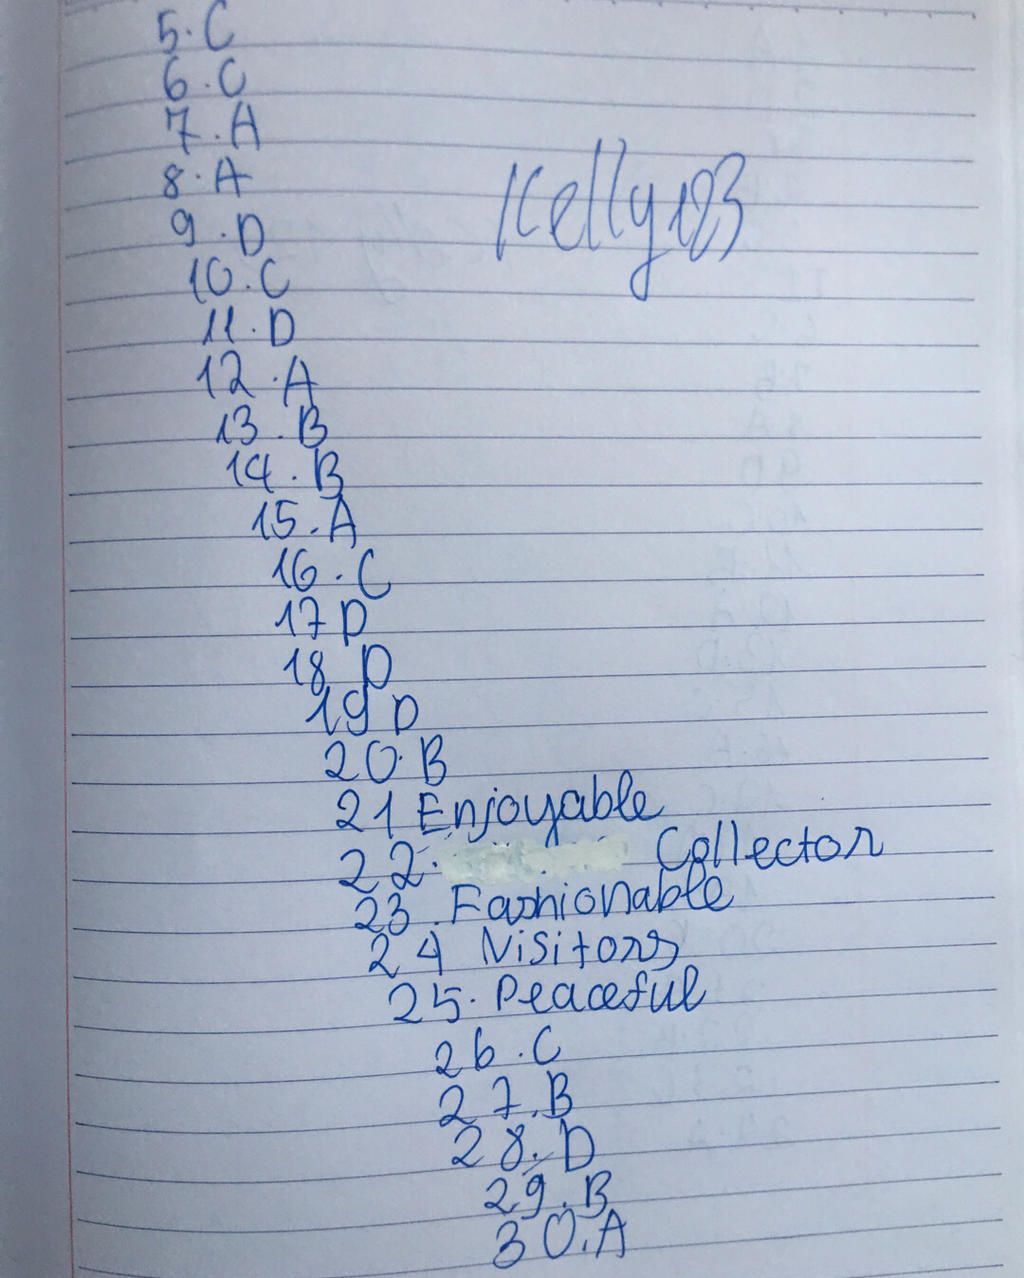 5.C
6.C
7.A
8.A
Kelly123
9.D
10.C
11.D
12.A
13.B
14.B
15.A
16.C
17 D
18 D
19 D
20.B
21 Enjoyable
22. Collector
23. Fashionable
24 Visitors
25. Peaceful
26.C
27.B
28.D
29.B
30.A